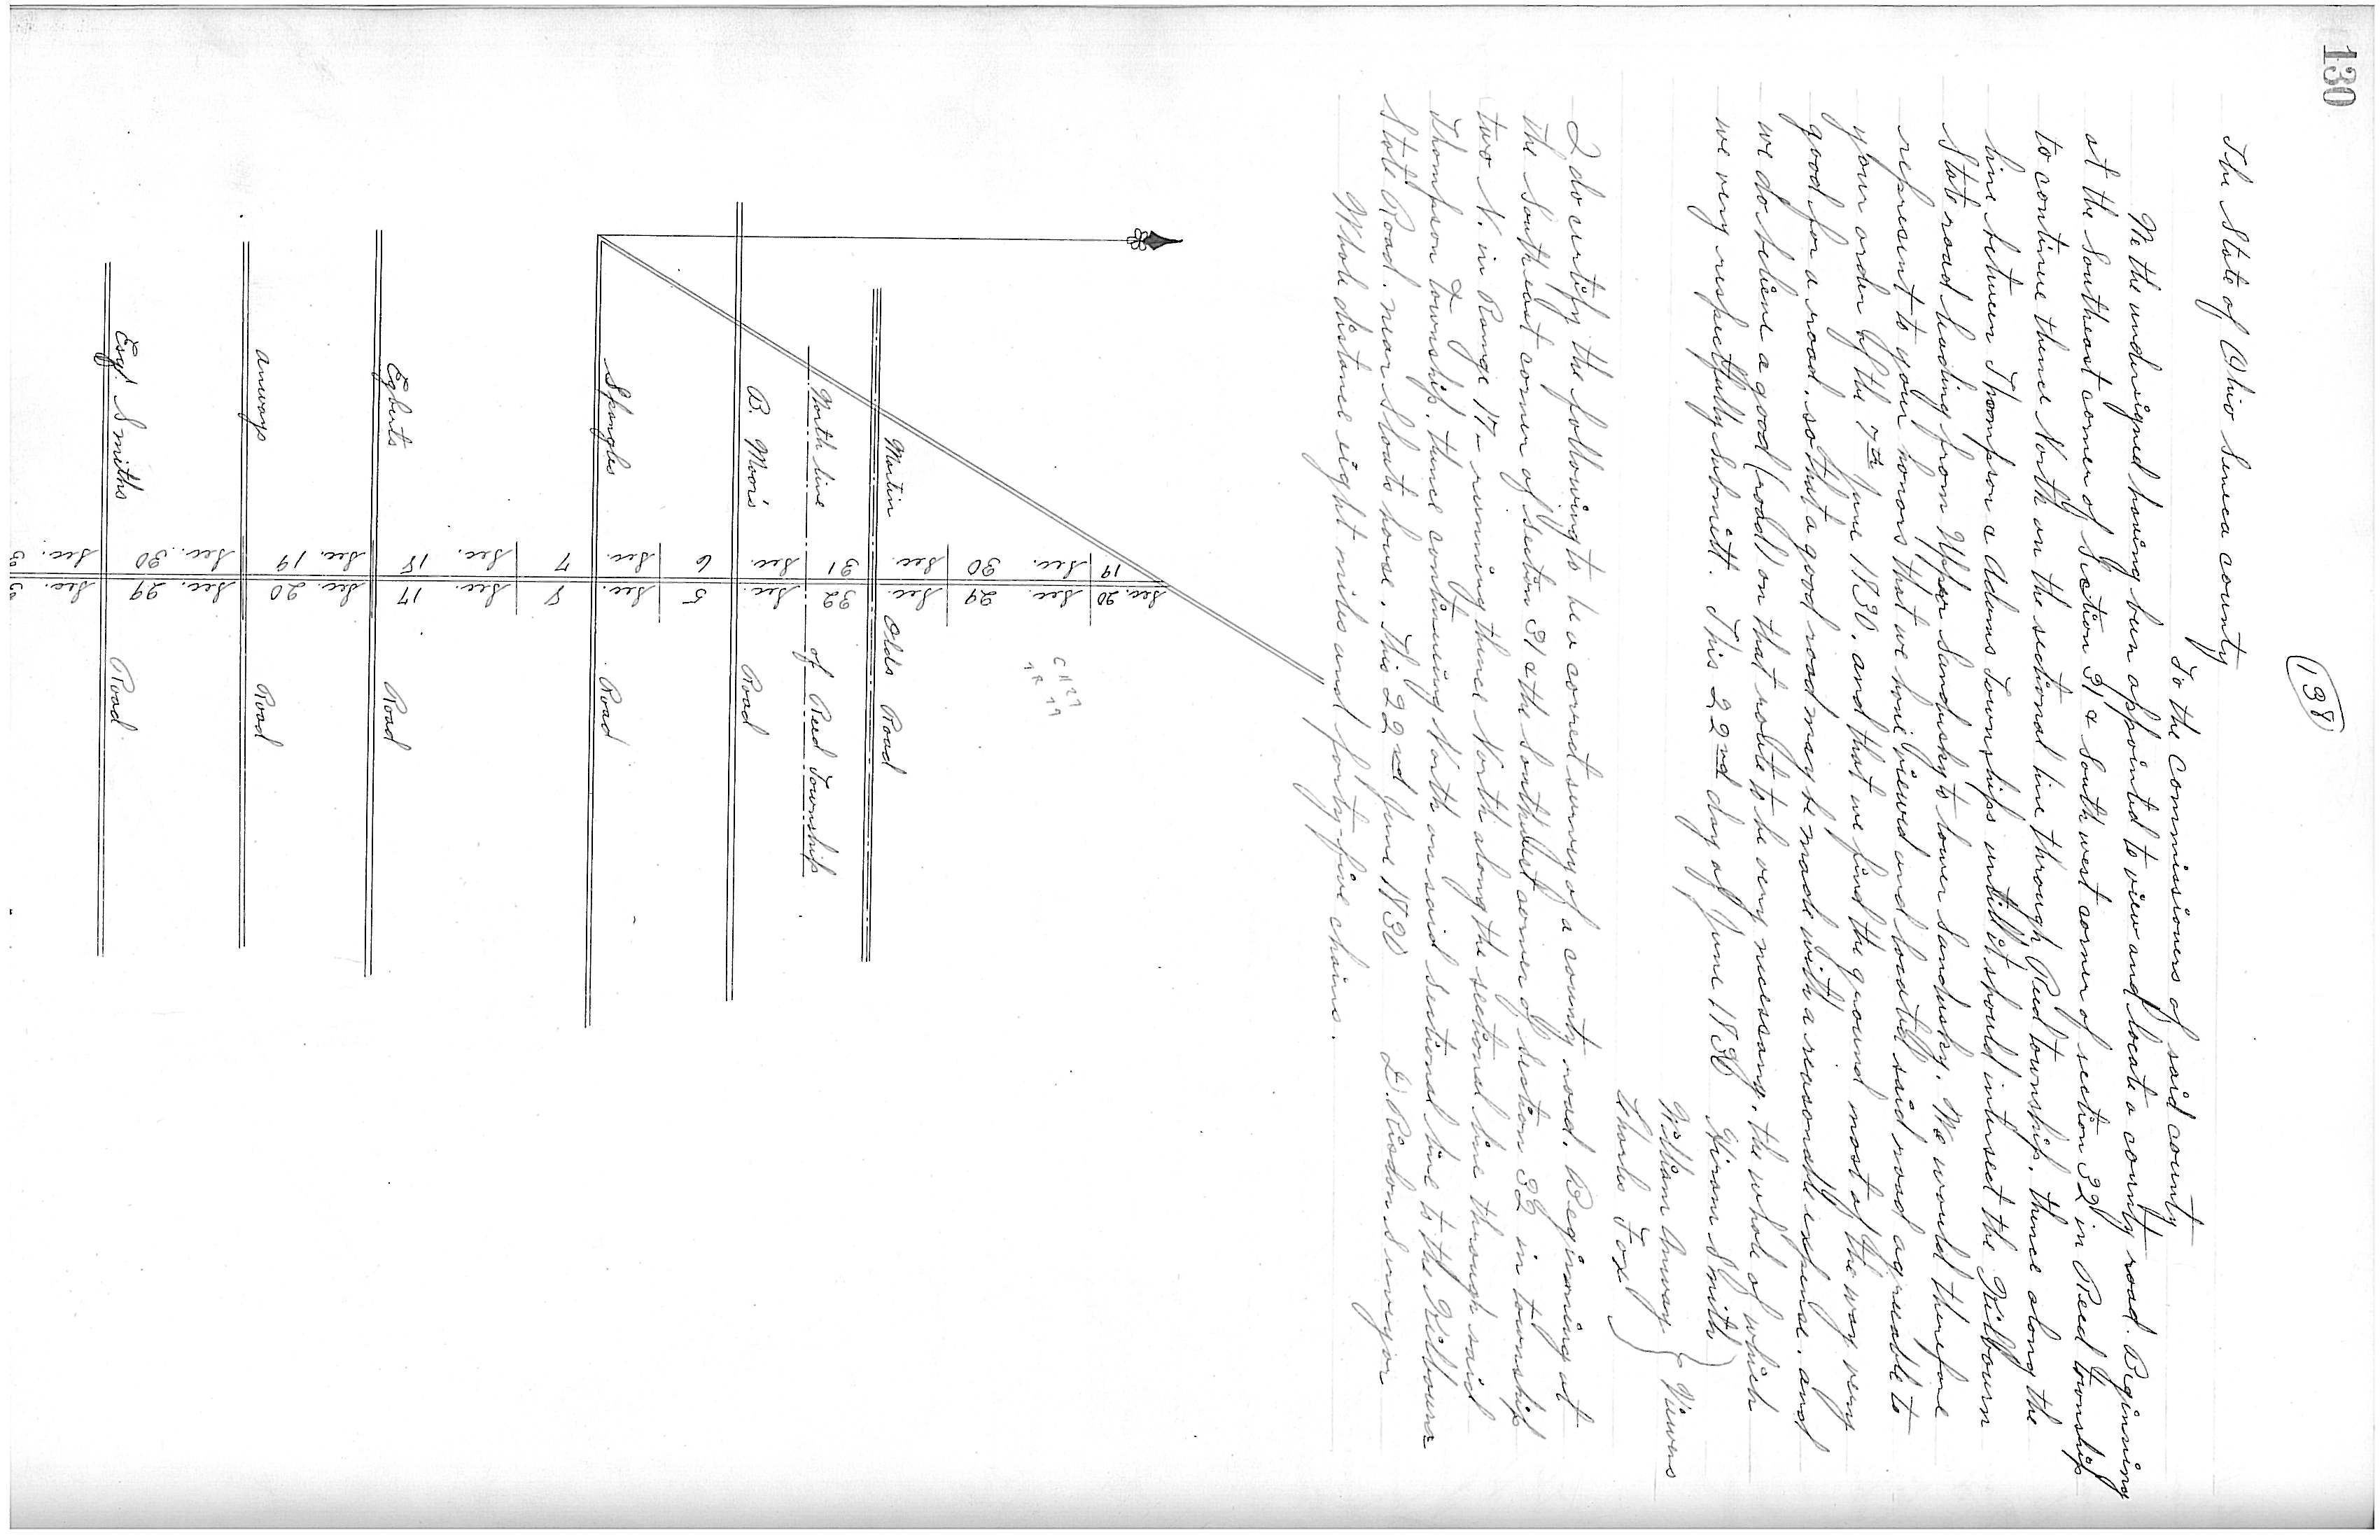 130
138
The State of Ohio Seneca county
To the commissioners of said county
We the undersigned having bun appointed to view and locate a county road. Beginning
at the Southeast corner of Section 31 & South west corner of section 32 in Reed township
to continue thence North on the sectional line through Reed township. thence along the
line between Thompson & Adams Townships untill it should intersect the Kilbourn
State road leading from Upper Sandusky to lower Sandusky. We would therefore
represent to your honors that we have viewed and located said road agreeable to
your order of the 7th June 1830. and that we find the ground most of the way very
good for a road. so that a good road may be made with a reasonable expense. and
we do believe a good (road) on that route to be very necessary. the whole of which
we very respectfully submitt. This 22nd day of June 1830
Hiram Smith
William Anway } Viewers
Charles Fox
I do certify the following to be a correct survey of a county road. Beginning at
the Southeast corner of Section 31 & the Southwest corner of Section 32 in township
two N. in Range 17 - running thence North along the sectional line through said
&
Thompson township. thence continuing North on said Sectional line to the Kilbourn
State Road. near Sloats house. This 22nd June 1830 D. Risdon Surveyor
Whole distance eight miles and forty-five chains.
19 Sec. 20
Sec. Sec.
30 29
Sec. Sec.
C H 27
T R 79
Martin Olds Road
31 32
North line of Reed Township
Sec. Sec.
B. Moor's Road
6 5
Sec. Sec.
Spangles Road
7 8
Sec. Sec.
18 17
Egberts Road
Sec. 19 Sec. 20
anways Road
Sec. 30 Sec. 29
Esqr. Smiths Road
Sec. Sec.